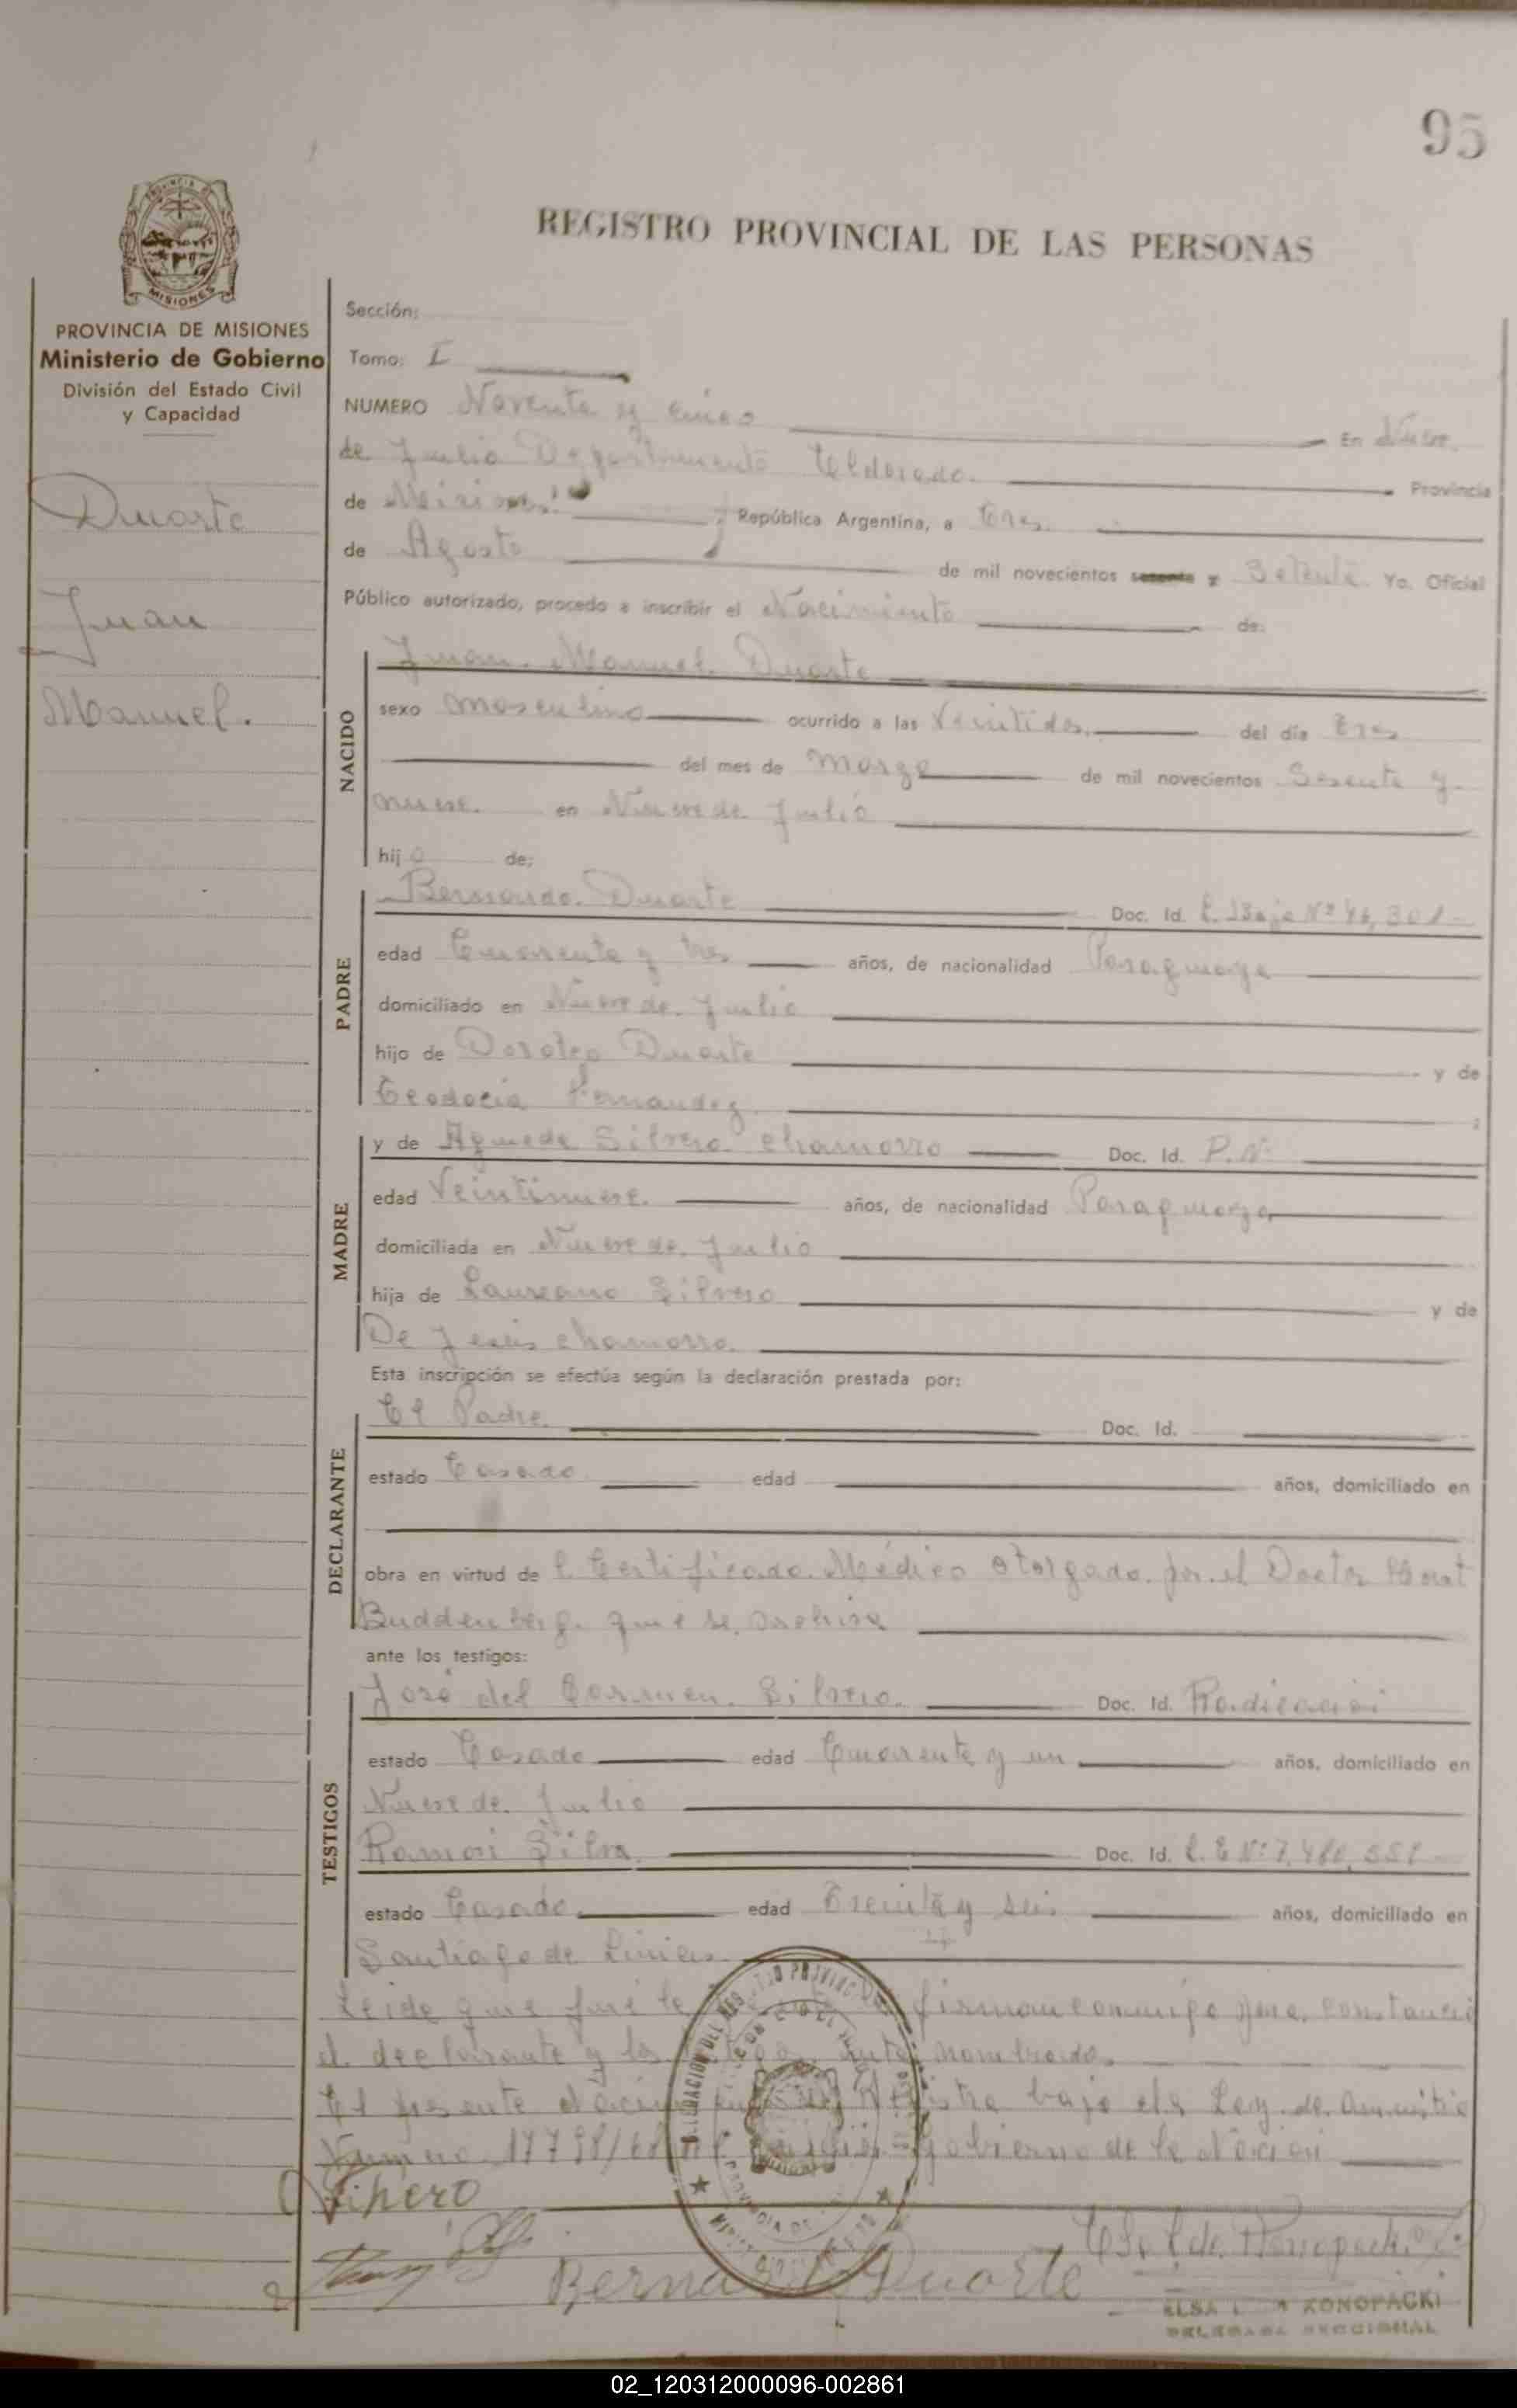 95
REGISTRO PROVINCIAL DE LAS PERSONAS
MISIONES
PROVINCIA DE MISIONES
Ministerio de Gobierno
División del Estado Civil
y Capacidad
Duarte
Juan
Manuel.
Sección:
Tomo: I
NUMERO Noventa y cinco En Nueve
de Julio Departamento Eldorado. Provincia
de Misiones República Argentina, a Tres
de Agosto de mil novecientos sesenta y Setenta Yo. Oficial
Público autorizado, procedo a inscribir el Nacimiento de:
NACIDO
Juan Manuel Duarte
sexo masculino ocurrido a las Veintidos del día tres
del mes de marzo de mil novecientos Sesenta y
nueve. en Nueve de Julio
hijo de:
PADRE
Bernardo Duarte Doc. Id.
edad Cuarenta y tres años, de nacionalidad Paraguaya
domiciliado en Nueve de Julio
hijo de Doroteo Duarte y de
Teodocia Fernandez
MADRE
y de Agueda Silvero Chamorro Doc. Id. P.N.
edad Veintinueve. años, de nacionalidad Paraguaya
domiciliada en Nueve de Julio
hija de Laureano Silvero y de
De Jesús Chamorro.
Esta inscripción se efectúa según la declaración prestada por:
DECLARANTE
El Padre. Doc. Id.
estado Casado edad años, domiciliado en
obra en virtud de l Certificado Médico otorgado por el Doctor
Buddenberg. que se archiva
ante los testigos:
TESTIGOS
José del Carmen Silvero. Doc. Id. Radicación
estado Casado edad Cuarenta y un años, domiciliado en
Nueve de Julio
Ramón Silva Doc. Id. L. E Nº 7,480,
estado Casado edad Treinta y seis años, domiciliado en
Santiago de Liniers
Leida que fué firman conmigo para constancia
el declarante y los ante nombrados.
El presente bajo Ley de Amnistia
Numero Gobierno de la Nación
Silvero
Bernardo Duarte
ELSA KONOPACKI
DELEGADA SECCIONAL
02_120312000096-002861